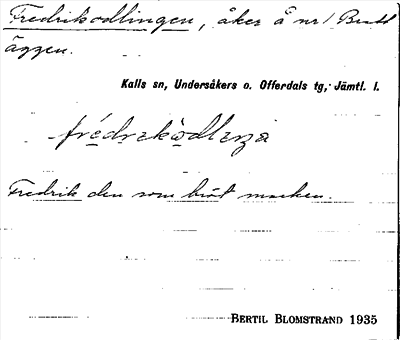 Fredriksodlingen, åker å nr 1 Bratt
äggen.
Kalls sn, Undersåkers o. Offerdals tg, Jämtl. l.
Fredrik den som bröt marken.
BERTIL BLOMSTRAND 1935